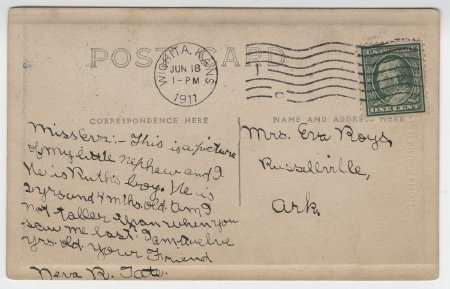 POST CARD
WICHITA, KANS
JUN 18
1-PM
1911
CORRESPONDENCE HERE
NAME AND ADDRESS HERE
Miss Eva:- This is a picture
of my little nephew and I
He is Ruth's boy. He is
2 yrs and 4 mths. old. Am I
not taller than when you
saw me last. I am twelve
yrs. old. Your Friend
Neva R. Tate.
Mrs. Eva Roys
Russellville,
Ark.
ONE CENT